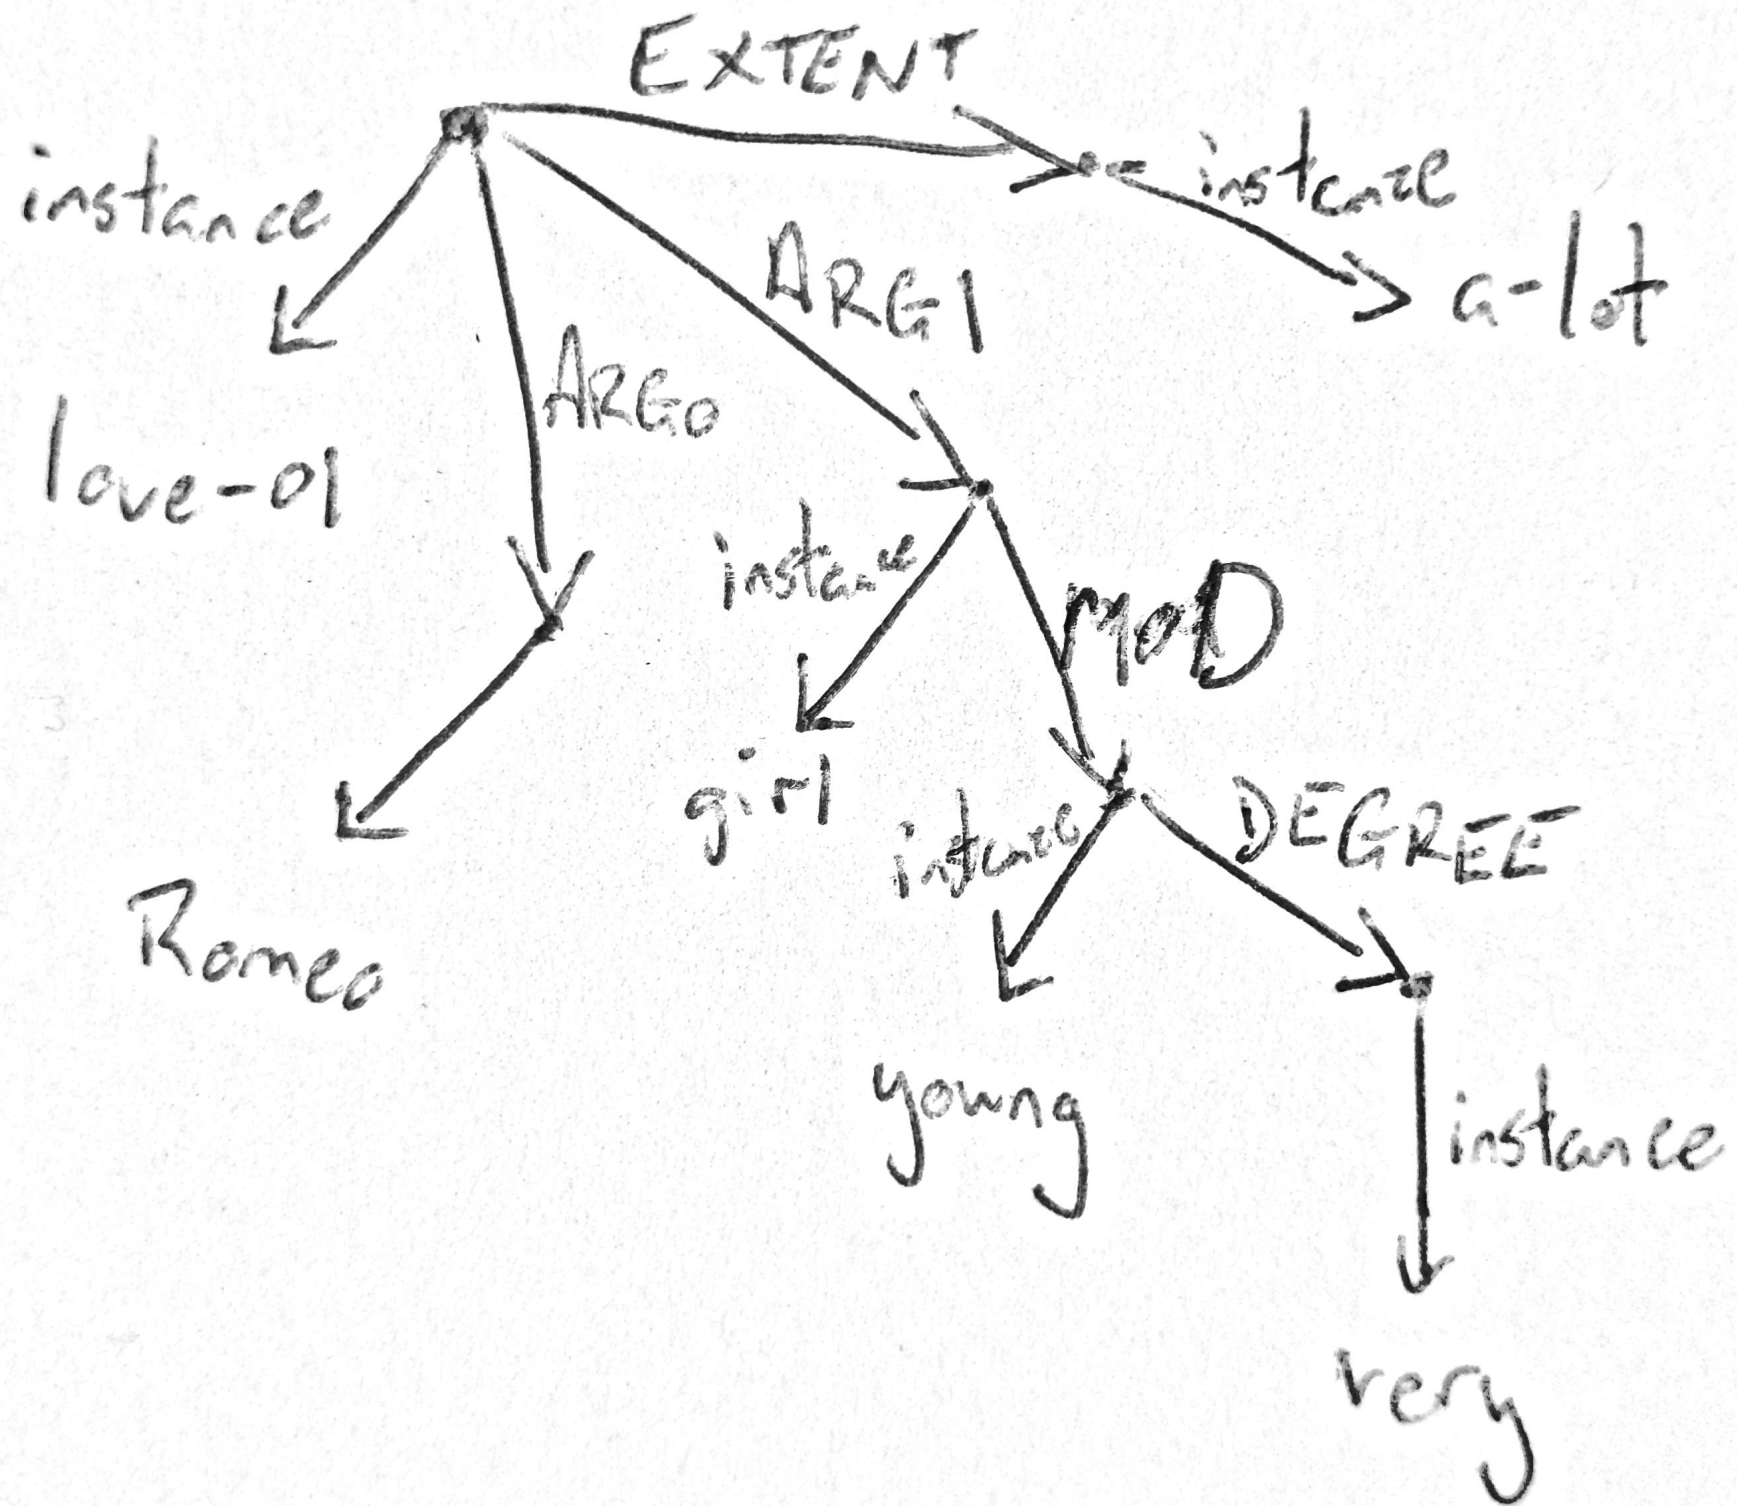 EXTENT
instance
instance
a-lot
ARG1
ARG0
love-01
instance
MOD
girl
intance
DEGREE
Romeo
young
instance
very